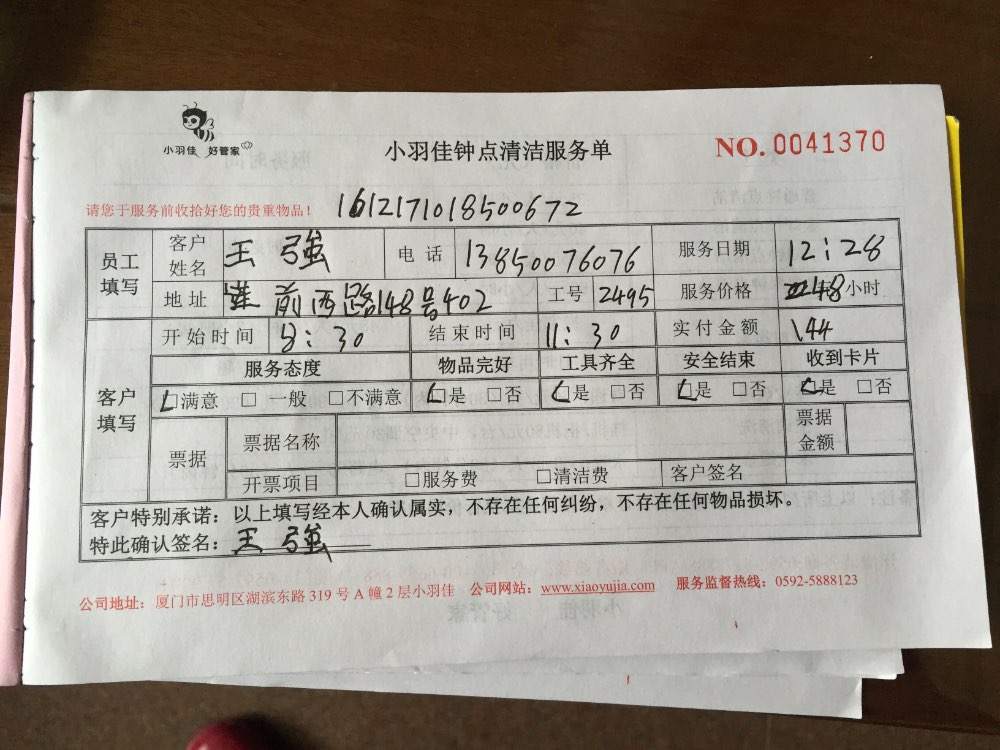 小羽佳 好管家
小羽佳钟点清洁服务单
NO. 0041370
请您于服务前收拾好您的贵重物品！ 1612171018500672
员工填写 客户姓名 王強 电话 13850076076 服务日期 12：28
地址 前西路148号402 工号 2495 服务价格 48小时
客户填写 开始时间 8：30 结束时间 11：30 实付金额 144
服务态度 物品完好 工具齐全 安全结束 收到卡片
□满意 □一般 □不满意 □是 □否 □是 □否 □是 □否 □是 □否
票据 票据名称 票据金额
开票项目 □服务费 □清洁费 客户签名
客户特别承诺：以上填写经本人确认属实，不存在任何纠纷，不存在任何物品损坏。
特此确认签名：王強
公司地址：厦门市思明区湖滨东路 319 号 A 幢 2 层小羽佳 公司网站：www.xiaoyujia.com 服务监督热线：0592-5888123